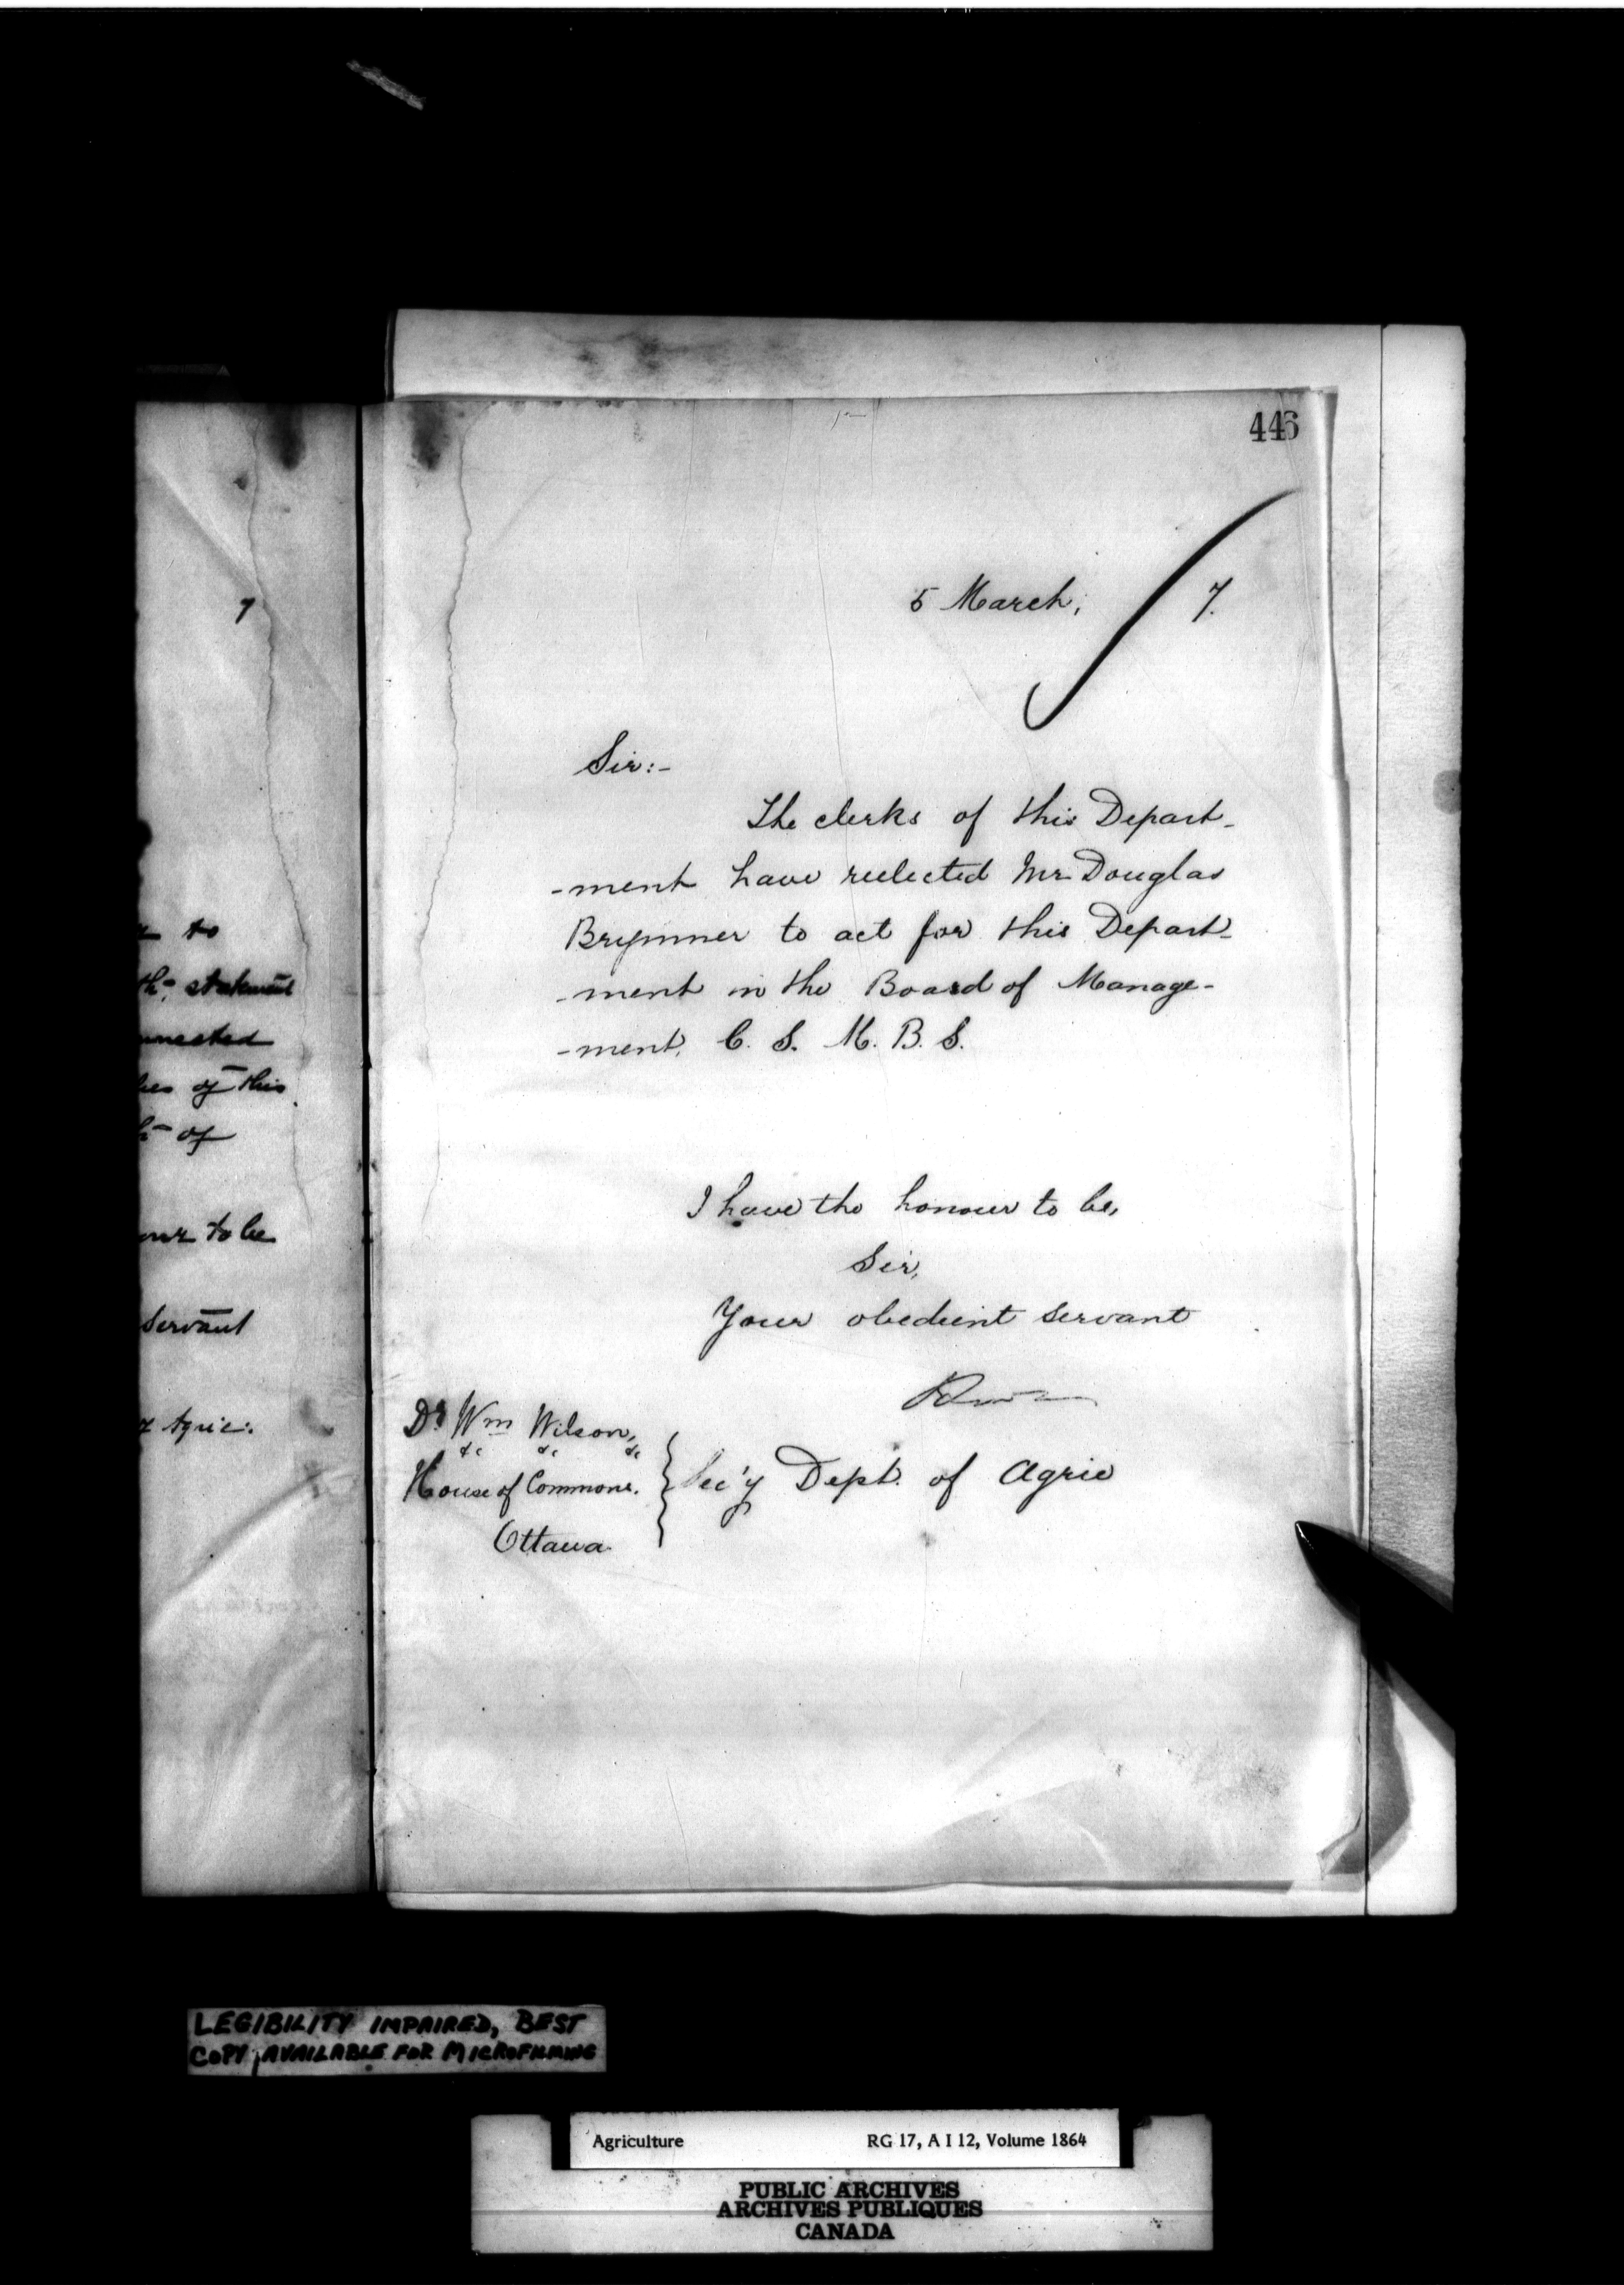 446
5 March, 7.
Sir:-
The clerks of this Depart-
-ment have reelected Mr Douglas
Brymner to act for this Depart-
-ment in the Board of Manage-
-ment, C. S. M. B. S.
I have the honour to be,
Sir,
Your obedient servant
Dr Wm Wilson,
&c &c &c
House of Commons.
Ottawa
Sec'y Dept. of Agric
7
to
statement
of this
of
to be
Servant
Agric:
LEGIBILITY IMPAIRED, BEST
COPY AVAILABLE FOR MICROFILMING
Agriculture RG 17, A I 12, Volume 1864
PUBLIC ARCHIVES
ARCHIVES PUBLIQUES
CANADA